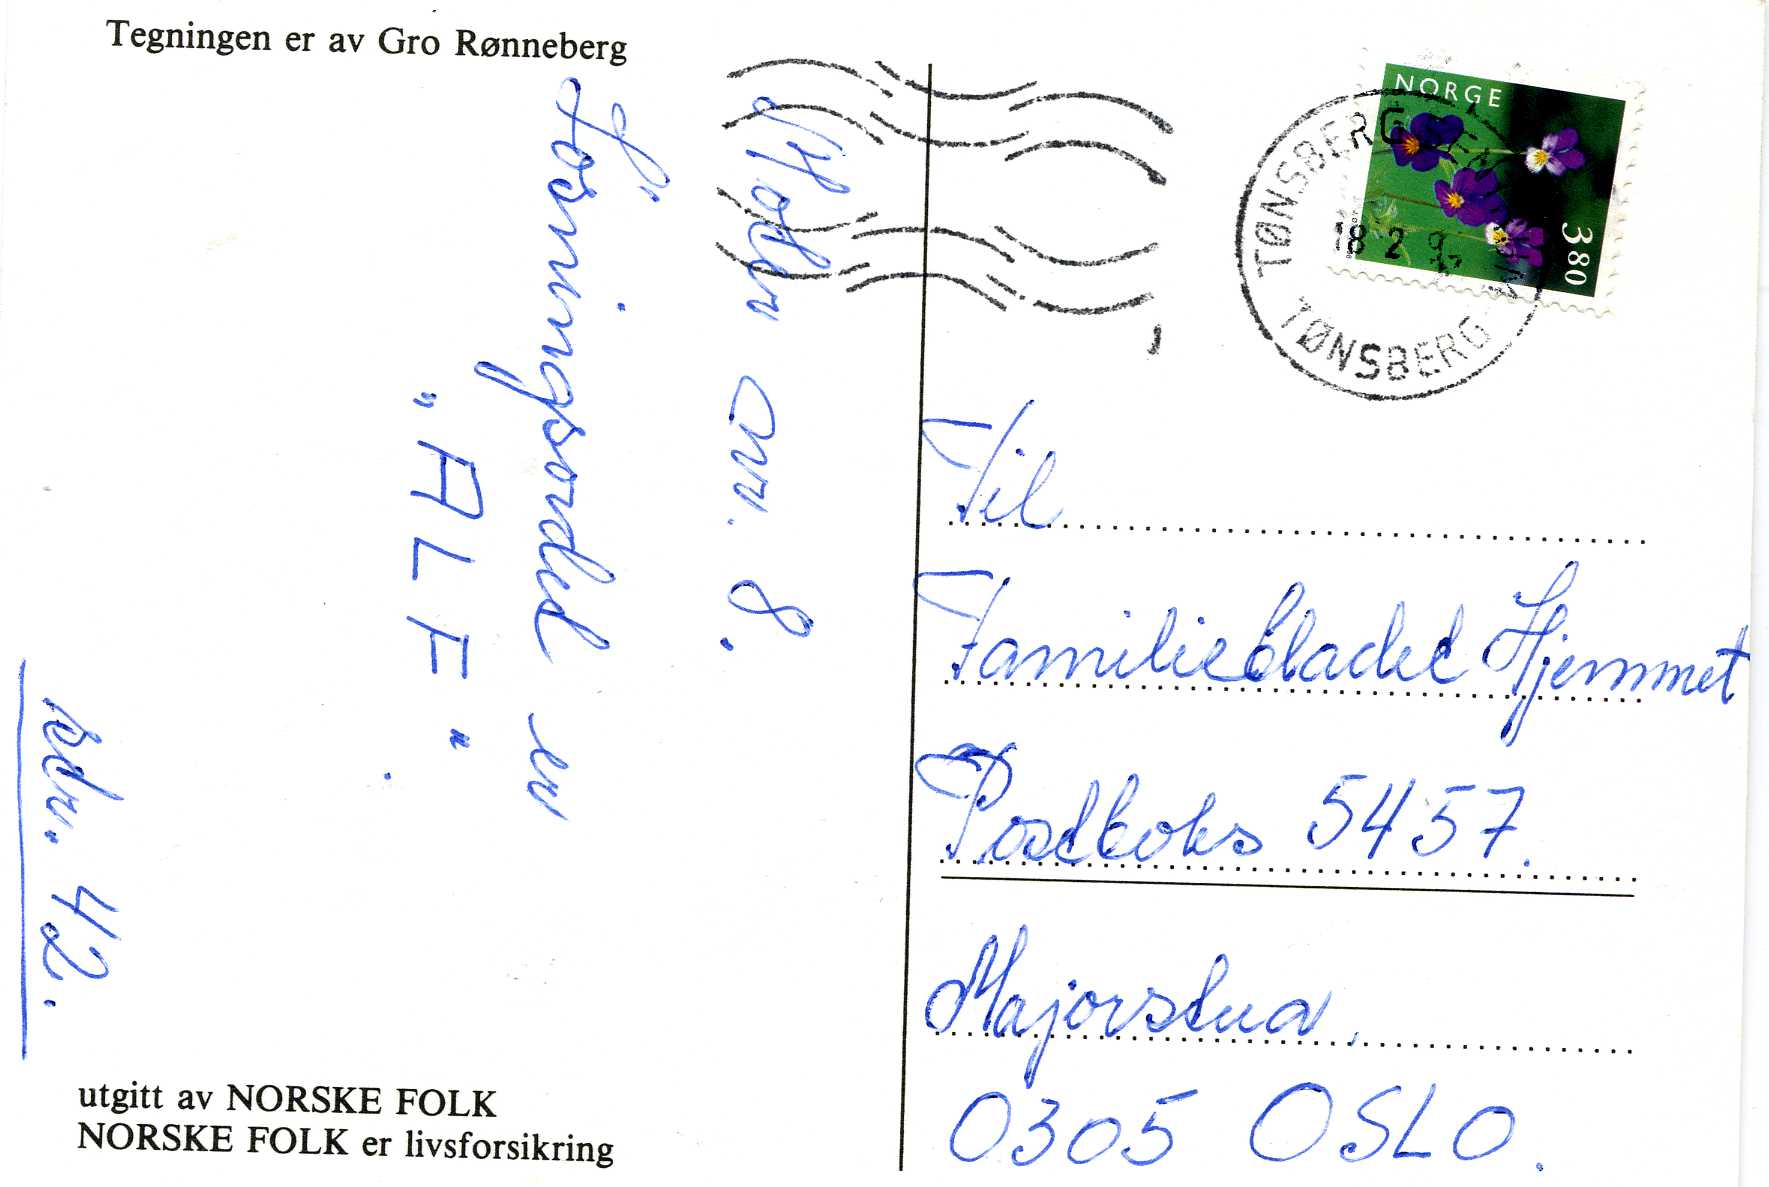 Tegningen er av Gro Rønneberg
nr. 8.
Løsningsordet er
„ALF“.
42.
utgitt av NORSKE FOLK
NORSKE FOLK er livsforsikring
NORGE
380
TØNSBERG
18 2
TØNSBERG
Til
Familiebladet Hjemmet
Postboks 5457.
Majorstua.
0305 OSLO.